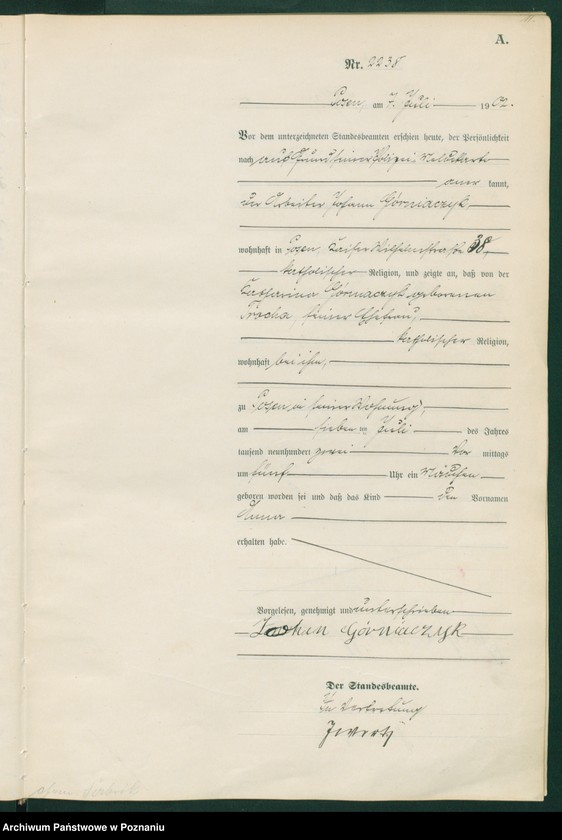 A.
Nr. 2238
Posen, am 7. Juli 1902.
Vor dem unterzeichneten Standesbeamten erschien heute, der Persönlichkeit
nach auf Grund seiner Polizei-Meldekarte
aner kannt,
der Arbeiter Johann Górniaczyk
wohnhaft in Posen, Kaiser Wilhelmstraße 38,
katholischer Religion, und zeigte an, daß von der
Katharina Górniaczyk geborenen
Trocha, seiner Ehefrau,
katholischer Religion,
wohnhaft bei ihm,
zu Posen, in seiner Wohnung,
am sieben ten Juli des Jahres
tausend neunhundert zwei Vor mittags
um fünf Uhr ein Mädchen
geboren worden sei und daß das Kind den Vornamen
Anna
erhalten habe.
Vorgelesen, genehmigt und unterschrieben
Johan Górniaczyk
Der Standesbeamte.
In Vertretung
Archiwum Państwowe w Poznaniu